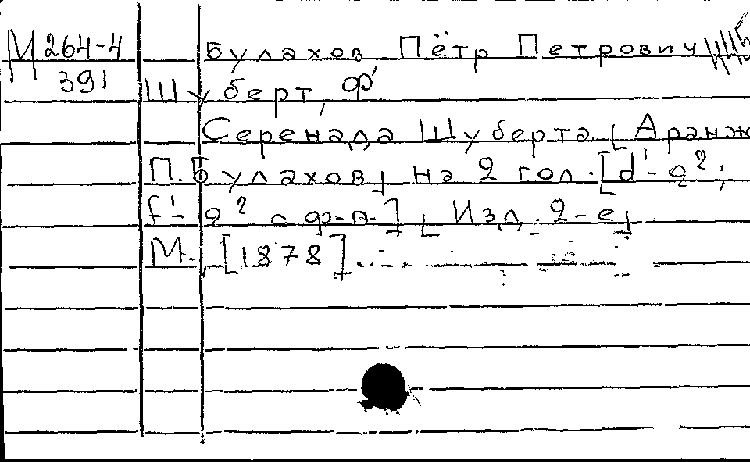 М 264-4 Булахов Пётр Петрович
391 Шуберт, Ф.
Серенада Шуберта [Аранж
П. Булахов] на 2 гол. [d¹-g²;
f¹-g² с ф-п.] [Изд. 2-е]
М., [1878]